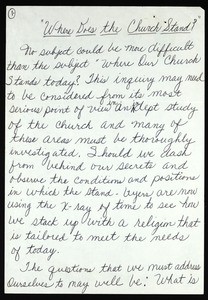 ①
"Where Does the Church Stand?"
No subject could be more difficult
than the subject "Where Our Church
Stands today? This inquiry may need
to be considered from its most
serious point of view. An kept study
of the Church and many of
these areas must be thoroughly
investigated. I should we dash
from behind our secrets and
observe the Conditions and positions
in which the Stand-byers are now
using the X-ray of time to see how
we stack up with a religion that
is tailored to meet the needs
of today.
The questions that we must address
Ourselves to may well be: "What is